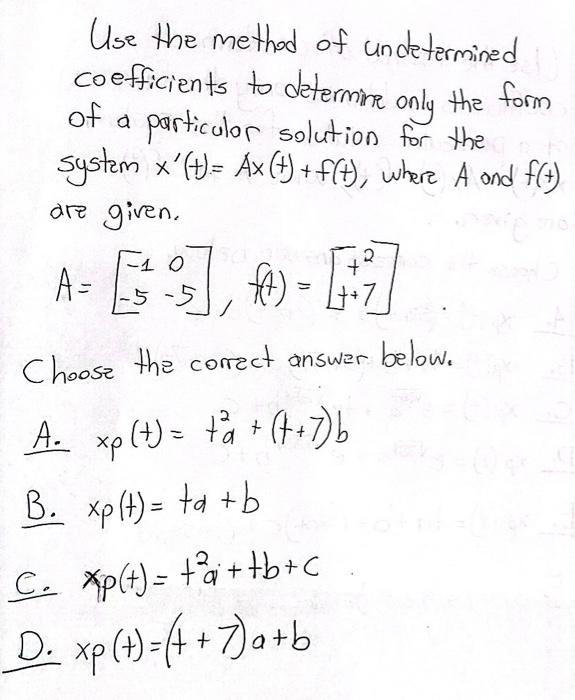 Use the method of undetermined
coefficients to determine only the form
of a particular solution for the
system x'(t) = Ax(t) + f(t), where A and f(t)
are given.
A = [-1 0; -5 -5], f(t) = [t²; t+7]
Choose the correct answer below.
A. xp(t) = t²a + (t+7)b
B. xp(t) = ta + b
C. xp(t) = t²a + tb + c
D. xp(t) = (t + 7)a + b